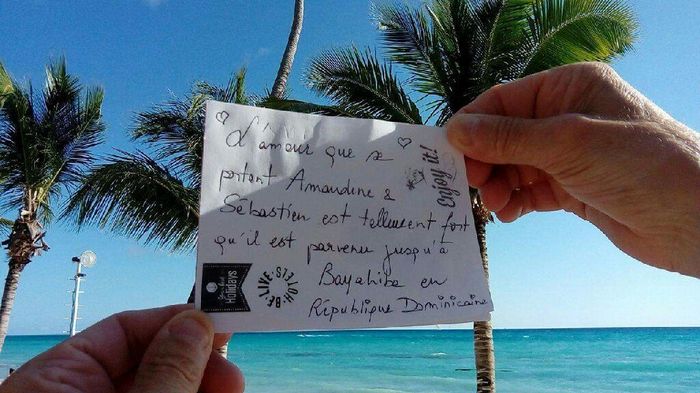 L'amour que se
portent Amandine &
Sébastien est tellement fort
qu'il est parvenu jusqu'à
Bayahibe en
République Dominicaine
enjoy it!
Holidays
BE LIVE HOTELS